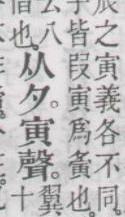 辰之寅義各不同
皆叚寅爲夤也。
公八
也。
从夕。寅聲。
翼
十